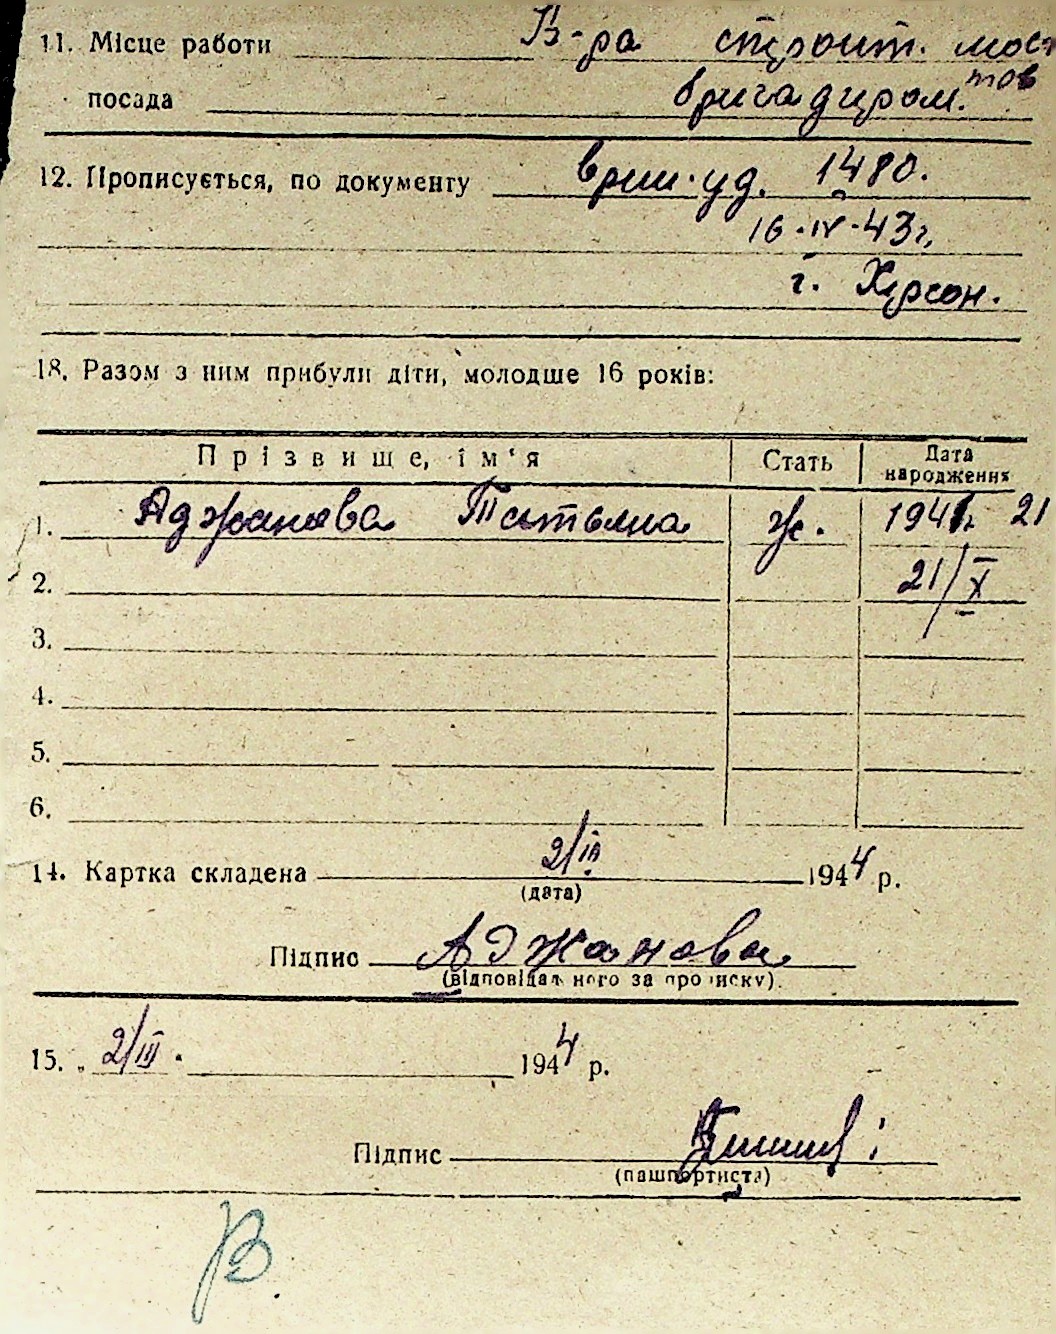 11. Місце работи В-ра строит. мос
тов
посада бригадиром.
12. Прописується, по документу врем. уд. 1480.
16·IV·43 г.
г. Херсон.
18. Разом з ним прибули діти, молодше 16 років:
Прізвище, ім'я Стать Дата народження
1. Аджанова Татьяна ж. 1941г. 21
2. 21/X
3.
4.
5.
6.
14. Картка складена 2/III 1944 р.
(дата)
Підпис Аджанова
(відповідального за прописку).
15. „ 2/III " 1944 р.
Підпис
(пашпортиста)
В.